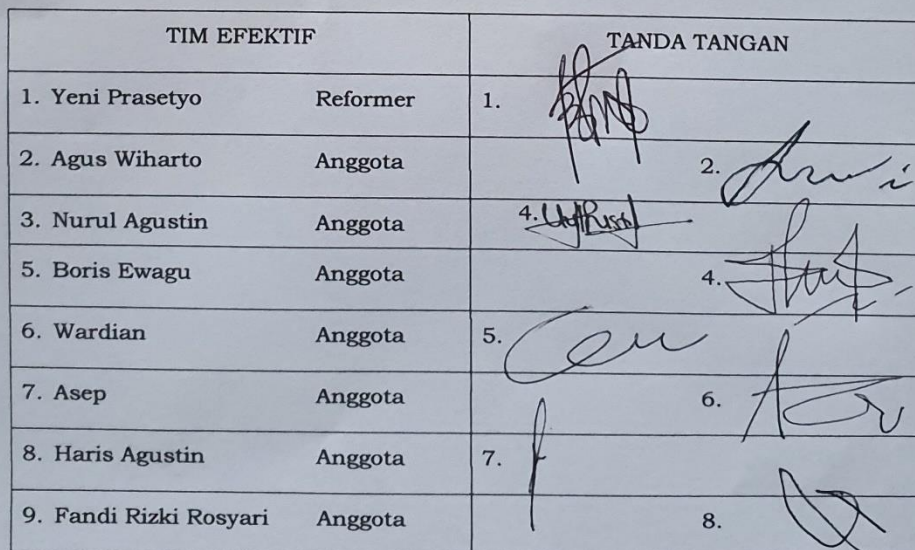 TIM EFEKTIF TANDA TANGAN
1. Yeni Prasetyo Reformer 1.
2. Agus Wiharto Anggota 2.
3. Nurul Agustin Anggota 4.
5. Boris Ewagu Anggota 4.
6. Wardian Anggota 5.
7. Asep Anggota 6.
8. Haris Agustin Anggota 7.
9. Fandi Rizki Rosyari Anggota 8.